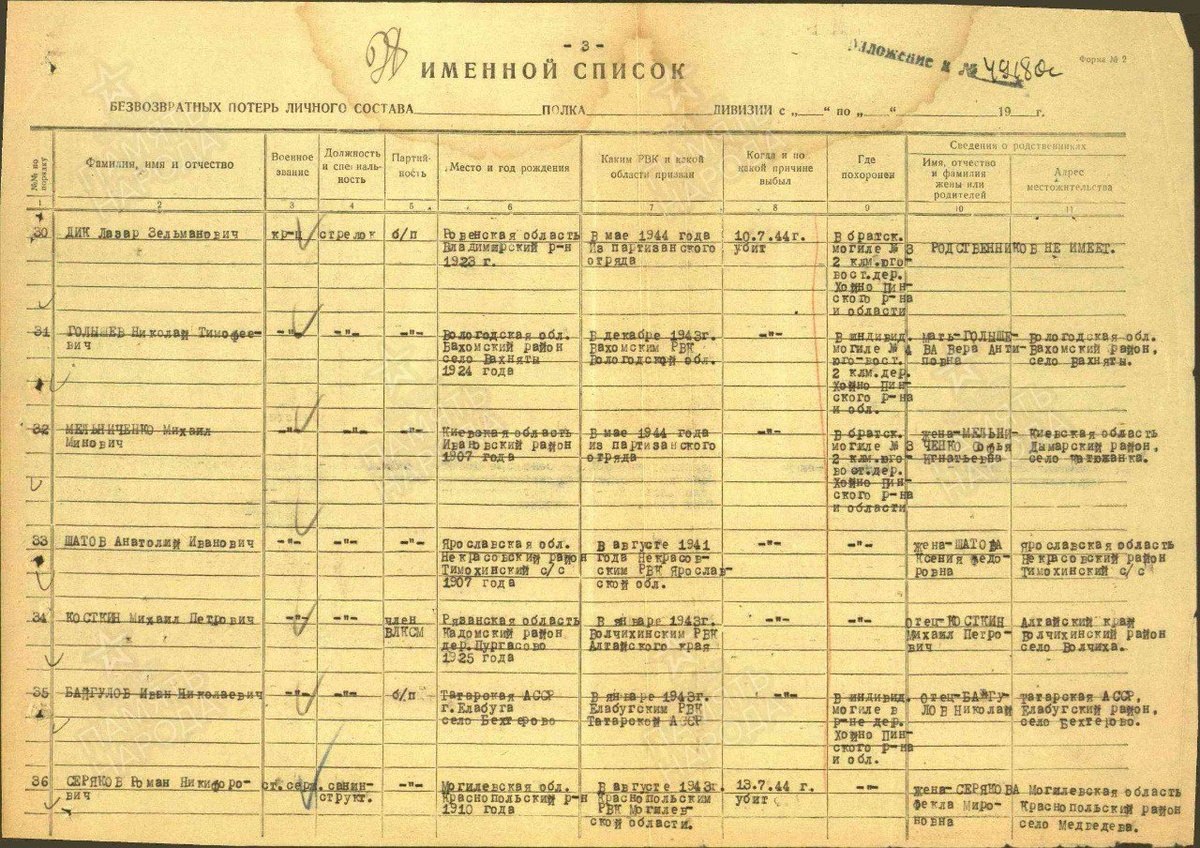 - 3 -
Приложение к № 49180с
Форма № 2
ИМЕННОЙ СПИСОК
БЕЗВОЗВРАТНЫХ ПОТЕРЬ ЛИЧНОГО СОСТАВА ПОЛКА ДИВИЗИИ с „ “ по „ “ 19 г.
№№ по порядку
Фамилия, имя и отчество
Военное звание
Должность и специальность
Партийность
Место и год рождения
Каким РВК и какой области призван
Когда и по какой причине выбыл
Где похоронен
Сведения о родственниках
Имя, отчество и фамилия жены или родителей
Адрес местожительства
1 2 3 4 5 6 7 8 9 10 11
30 ДИК Лазар Зельманович кр-ц стрелок б/п Ровенская область В мае 1944 года 10.7.44г. В братск.
Владимирский р-н Из партизанского убит могиле № 3 РОДСТВЕННИКОВ НЕ ИМЕЕТ.
1923 г. отряда 2 клм.юго-
вост.дер.
Хойно Пин-
ского р-на
и области
31 ГОЛЫШЕВ Николай Тимофее- -"- -"- -"- Вологодская обл. В декабре 1943г. -"- В индивид. мать-ГОЛЫШЕ- Вологодская обл.
вич Вахомский район Вахомским РВК могиле № 4 ВА Вера Анти- Вахомский район,
село Вахняты Вологодской обл. юго-вост. повна село Вахняты.
1924 года 2 клм.дер.
Хойно Пин-
ского р-на
и обл.
32 МЕЛЬНИЧЕНКО Михаил -"- -"- -"- Киевская область В мае 1944 года -"- В братск. жена-МЕЛЬНИ- Киевская область
Минович Ивановский район из партизанского могиле № 3 ЧЕНКО Софья Дымарский район,
1907 года отряда 2 клм.юго- Игнатьевна село Катюжанка.
вост.дер.
Хойно Пин-
ского р-на
и области
33 ШАТОВ Анатолий Иванович -"- -"- -"- Ярославская обл. В августе 1941 -"- -"- жена-ШАТОВА Ярославская область
Некрасовский район года Некрасов- Ксения Федо- Некрасовский район
Тимохинский с/с ским РВК Ярослав- ровна Тимохинский с/с
1907 года ской обл.
34 КОСТКИН Михаил Петрович -"- -"- член Рязанская область В январе 1943г. -"- -"- отец-КОСТКИН Алтайский край
ВЛКСМ Кадомский район Волчихинским РВК Михаил Петро- Волчихинский район
дер.Пургасово Алтайского края вич село Волчиха.
1925 года
35 БАЙГУЛОВ Иван Николаевич -"- -"- б/п Татарская АССР В январе 1943г. -"- В индивид. Отец-БАЙГУ- Татарская АССР,
г.Елабуга Елабугским РВК могиле в ЛОВ Николай Елабугский район,
село Бехтерево Татарской АССР р-не дер. село Бехтерово.
Хойно Пин-
ского р-на
и обл.
36 СЕРЯКОВ Роман Никифоро- ст.серж. санин- -"- Могилевская обл. В августе 1943г. 13.7.44 г. -"- жена-СЕРЯКОВА Могилевская область
вич структ. Краснопольский р-н Краснопольским убит Фекла Миро- Краснопольский район
1910 года РВК Могилев- новна село Медведева.
ской области.
ПАМЯТЬ НАРОДА